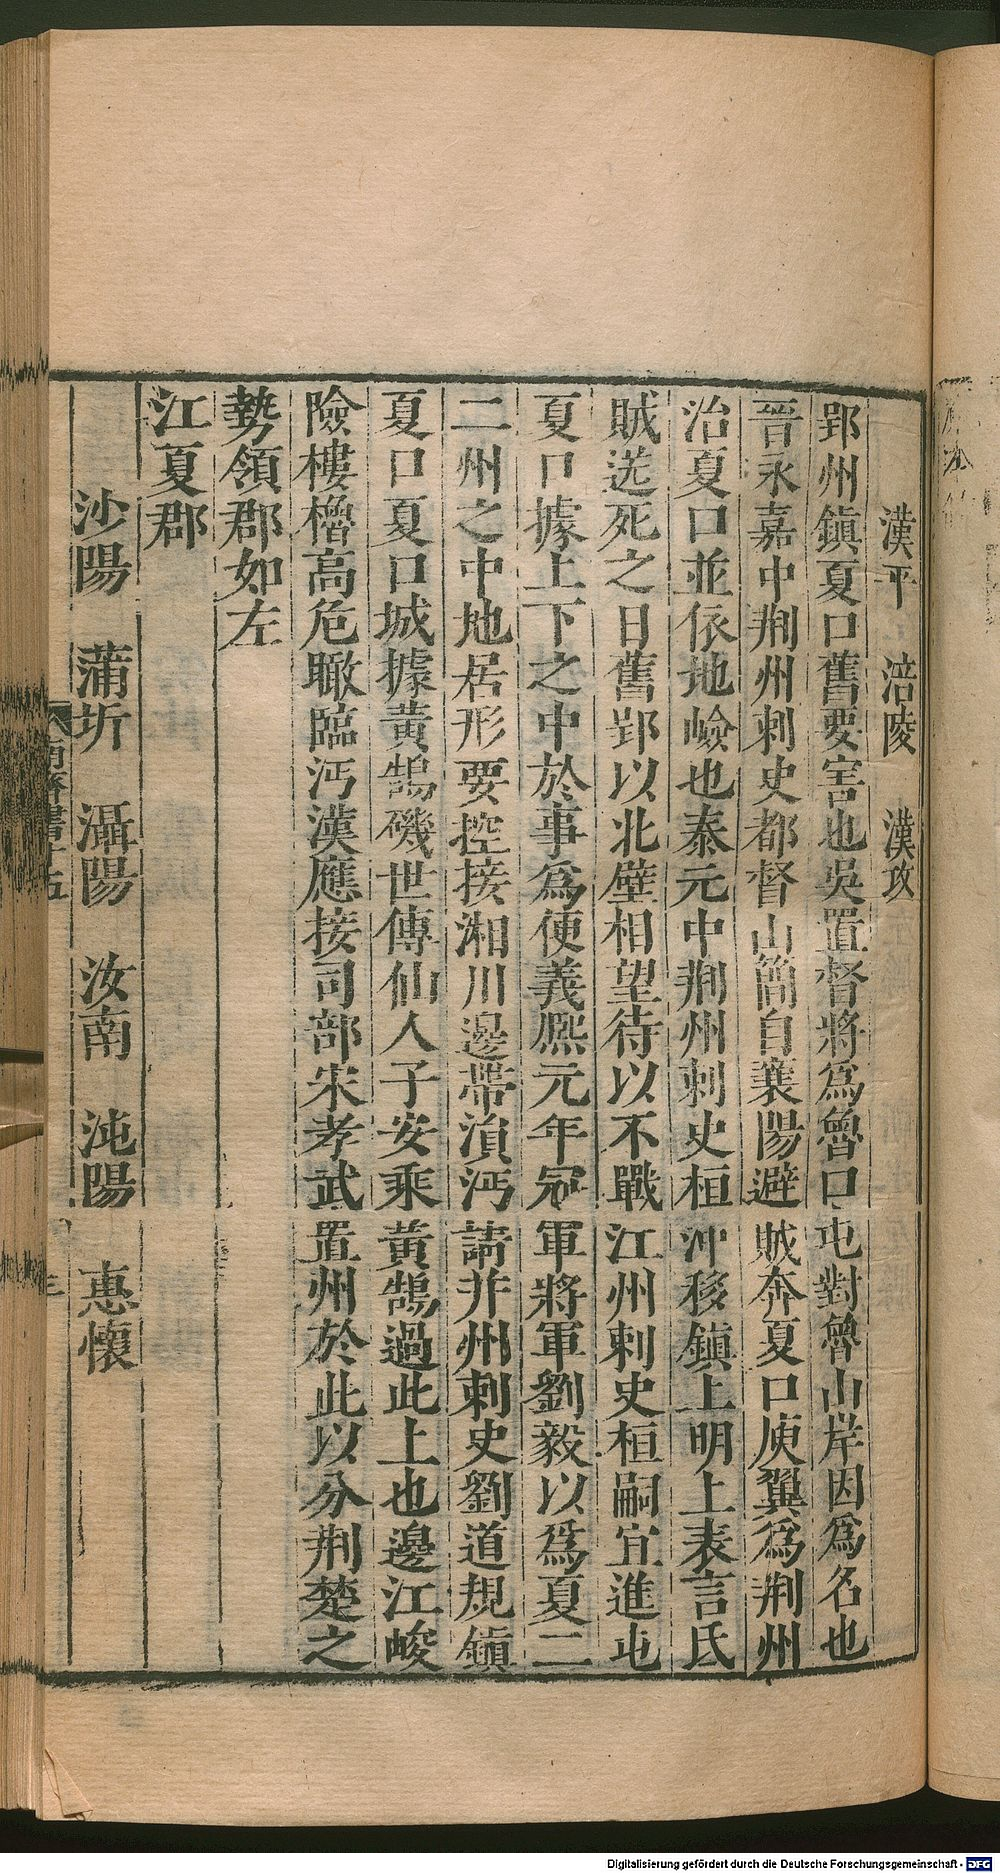 漢平　涪陵　漢玫
郢州鎮夏口舊要害也吳置督將爲魯口屯對魯山岸因爲名也
晉永嘉中荆州刺史都督山簡自襄陽避賊奔夏口庾翼爲荆州
治夏口並依地嶮也泰元中荆州刺史桓沖移鎮上明上表言氐
賊送死之日舊郢以北壁相望待以不戰江州刺史桓嗣宜進屯
夏口據上下之中於事爲便義熙元年冠軍將軍劉毅以爲夏口
二州之中地居形要控接湘川邊帶溳沔請并州刺史劉道規鎮
夏口夏口城據黃鵠磯世傳仙人子安乘黃鵠過此上也邊江峻
險樓櫓高危瞰臨沔漢應接司部宋孝武置州於此以分荆楚之
勢領郡如左
江夏郡
沙陽　蒲圻　灄陽　汝南　沌陽　惠懷
南齊書十五
Digitalisierung gefördert durch die Deutsche Forschungsgemeinschaft - DFG